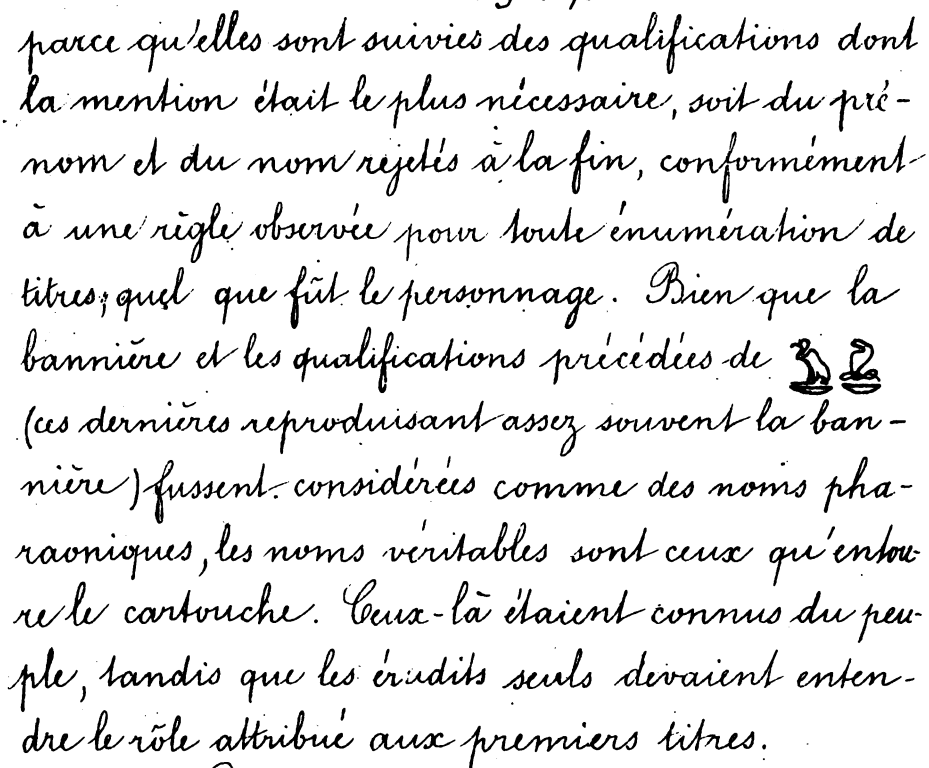 parce qu'elles sont suivies des qualifications dont
la mention était le plus nécessaire, soit du pré-
nom et du nom rejetés à la fin, conformément
à une règle observée pour toute énumération de
titres, quel que fût le personnage. Bien que la
bannière et les qualifications précédées de
(ces dernières reproduisant assez souvent la ban-
nière) fussent considérées comme des noms pha-
raoniques, les noms véritables sont ceux qu'entou-
re le cartouche. Ceux-là étaient connus du peu-
ple, tandis que les érudits seuls devaient enten-
dre le rôle attribué aux premiers titres.